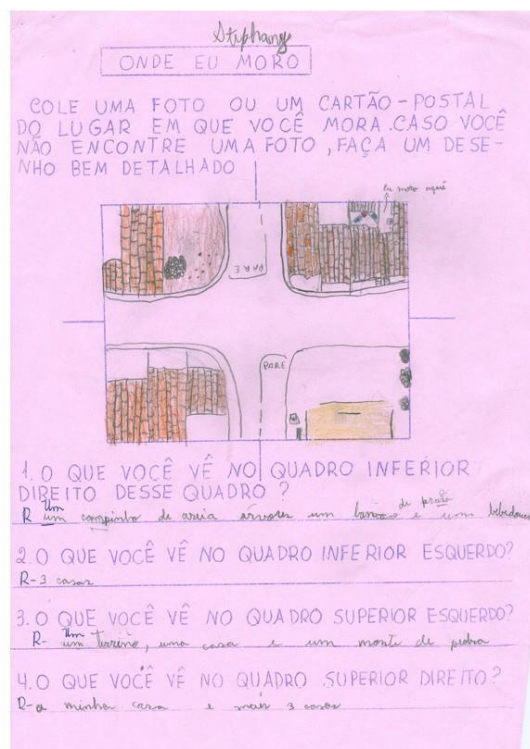 Stephany
ONDE EU MORO
COLE UMA FOTO OU UM CARTÃO-POSTAL
DO LUGAR EM QUE VOCÊ MORA. CASO VOCÊ
NÃO ENCONTRE UMA FOTO, FAÇA UM DESE-
NHO BEM DETALHADO
Eu moro aqui
PARE
PARE
1. O QUE VOCÊ VÊ NO QUADRO INFERIOR
DIREITO DESSE QUADRO?
R Um campinho de areia árvores um banco de praça e um
2. O QUE VOCÊ VÊ NO QUADRO INFERIOR ESQUERDO?
R- 3 casas
3. O QUE VOCÊ VÊ NO QUADRO SUPERIOR ESQUERDO?
R- Um terreno, uma casa e um monte de pedra
4. O QUE VOCÊ VÊ NO QUADRO SUPERIOR DIREITO?
R- a minha casa e mais 3 casas